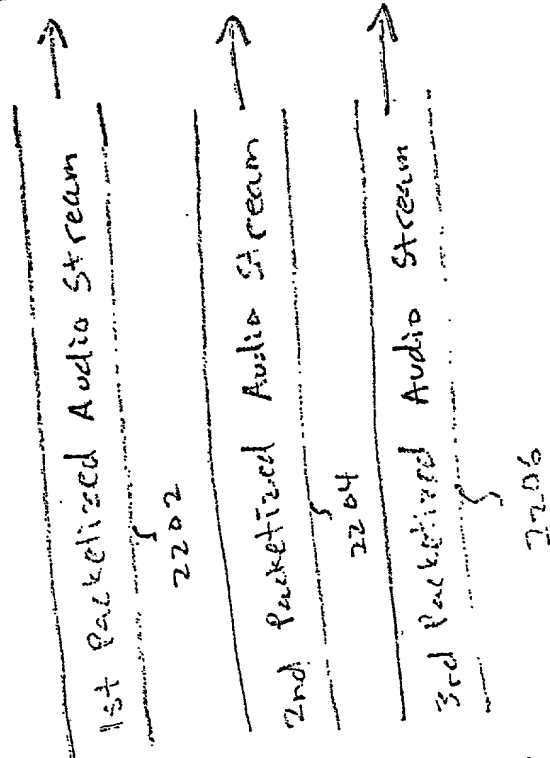 1st Packetized Audio Stream
2202
2nd Packetized Audio Stream
2204
3rd Packetized Audio Stream
2206